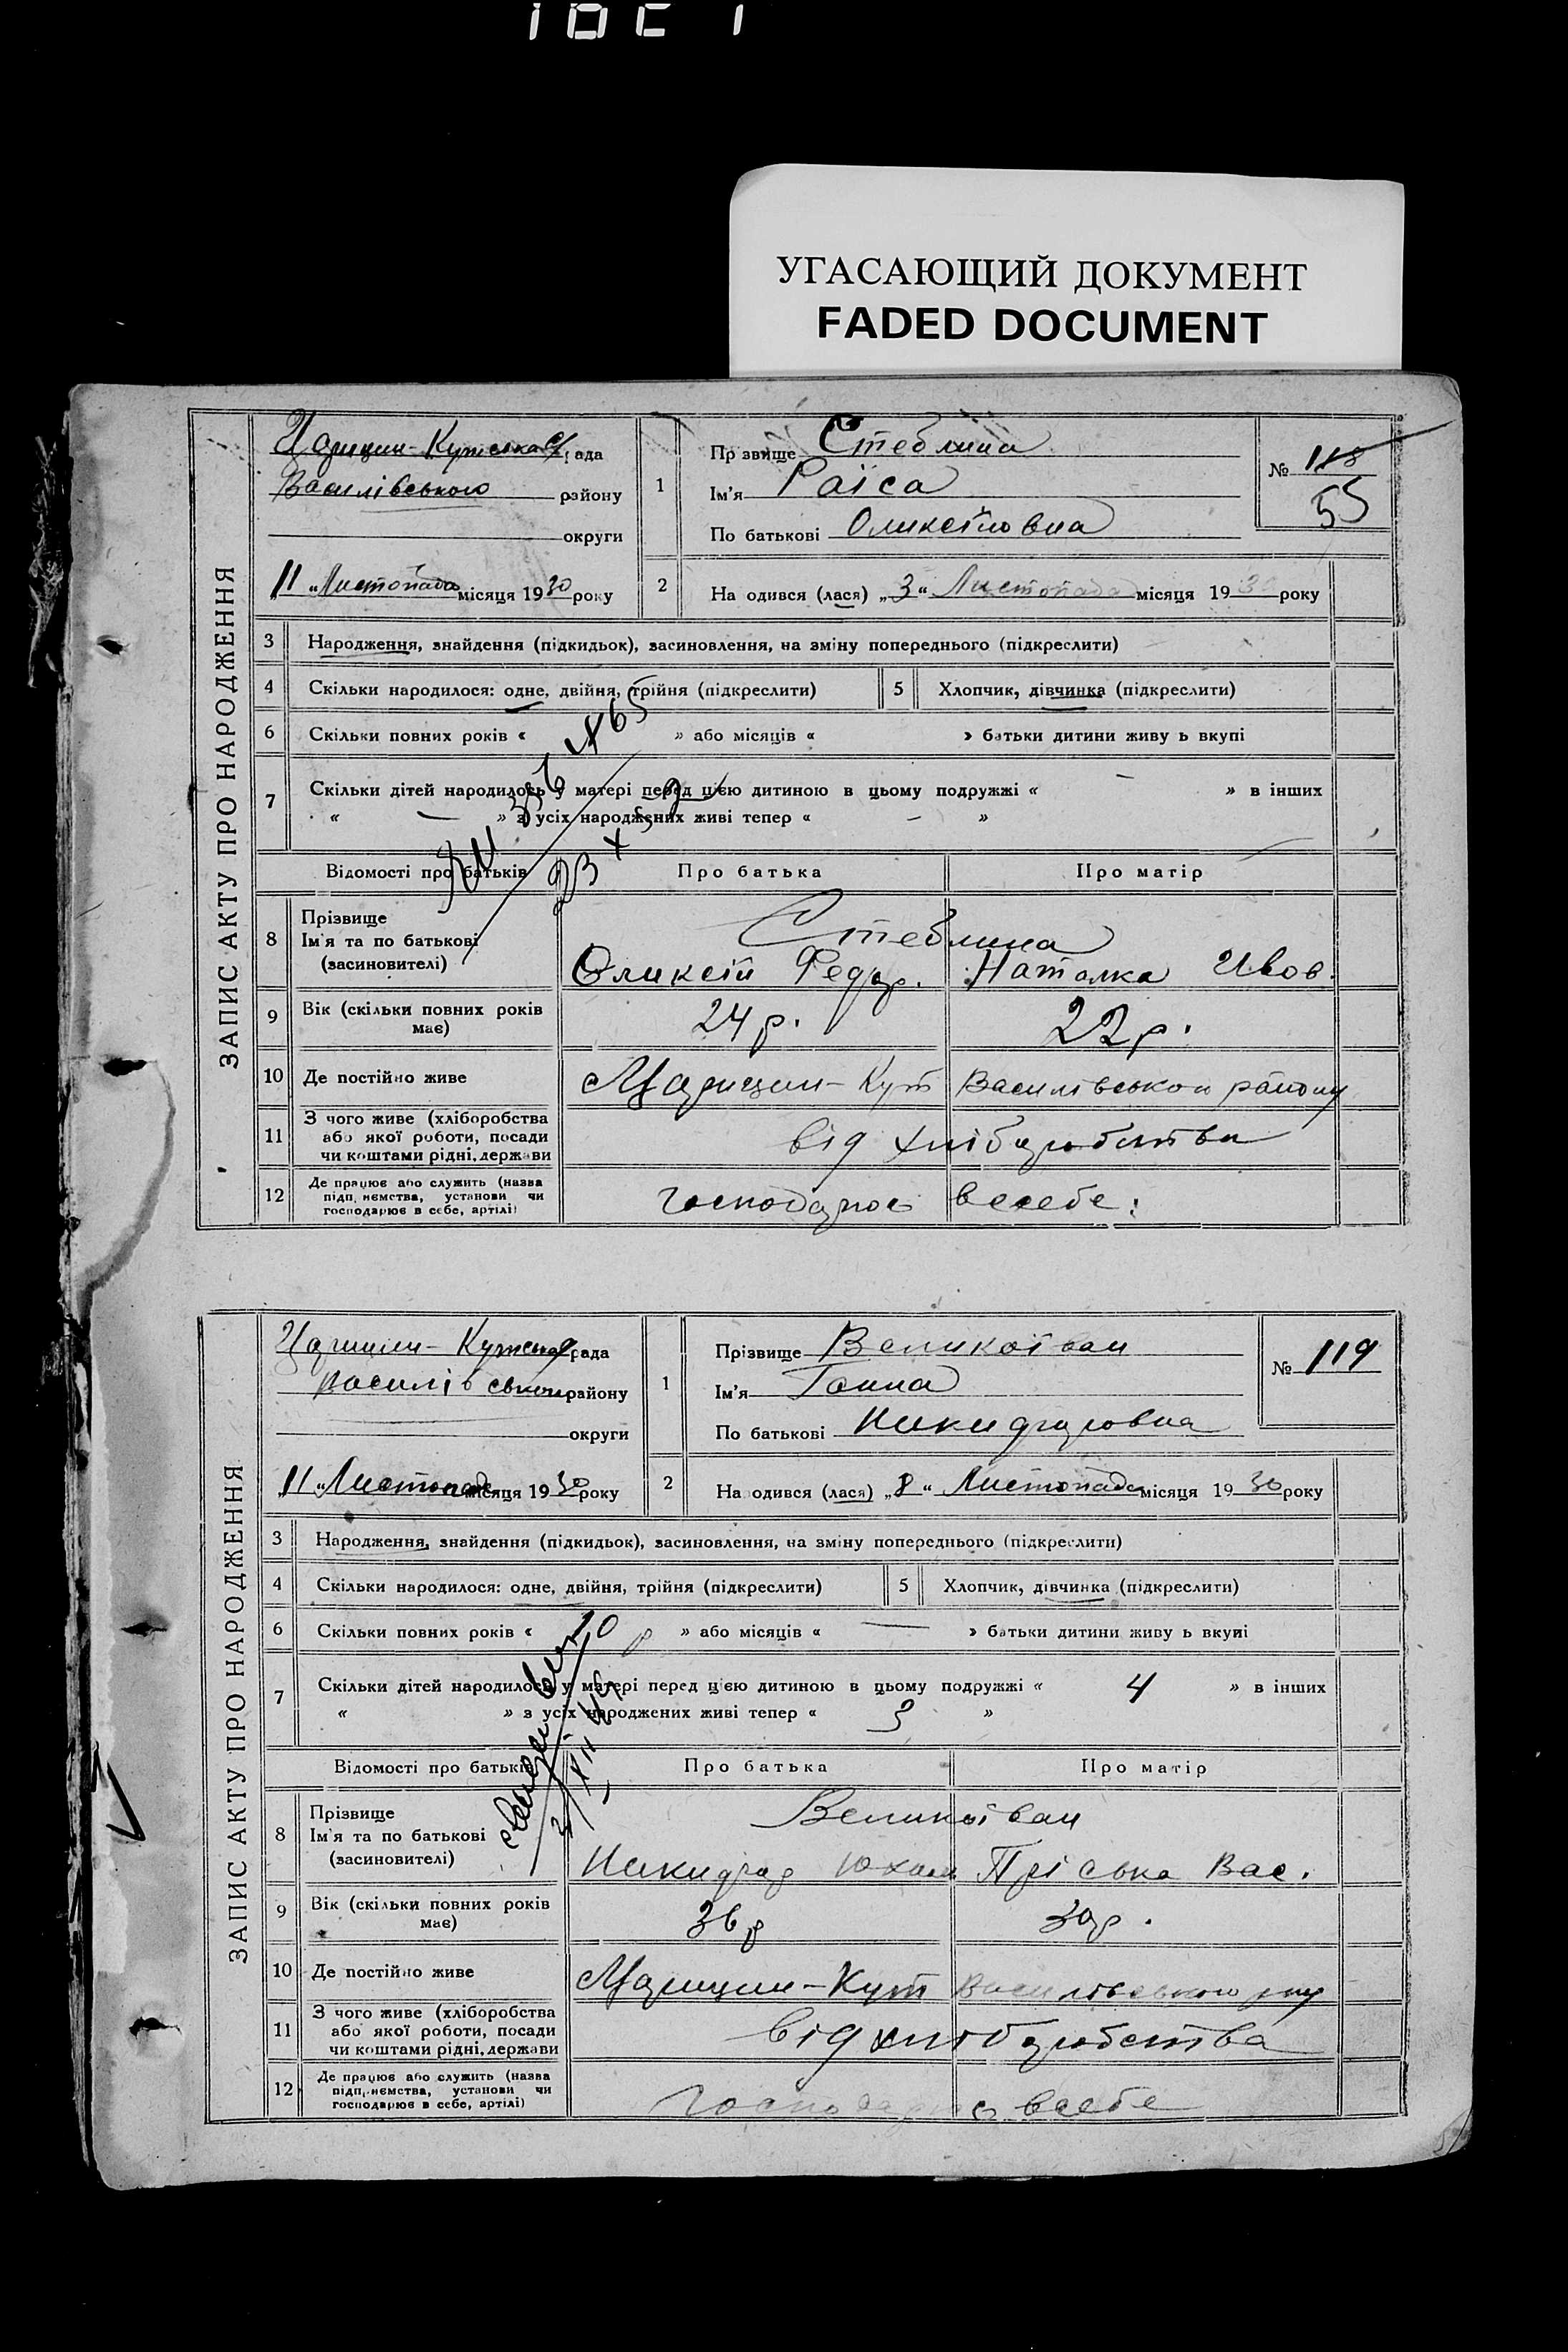 УГАСАЮЩИЙ ДОКУМЕНТ
FADED DOCUMENT
ЗАПИС АКТУ ПРО НАРОДЖЕННЯ
Царицин-Кутська с/рада
Василівського району
округи
„11“ Листопада місяця 1930 року
1
Прізвище Стеблина
Ім'я Раїса
По батькові Олексіївна
№ 118
55
2 На одився (лася) „3“ Листопада місяця 1930 року
3 Народження, знайдення (підкидьок), засиновлення, на зміну попереднього (підкреслити)
4 Скільки народилося: одне, двійня, трійня (підкреслити) 5 Хлопчик, дівчинка (підкреслити)
6 Скільки повних років « » або місяців « » батьки дитини живу ь вкупі
7 Скільки дітей народилось у матері перед цією дитиною в цьому подружжі « — » в інших
« — » з усіх народжених живі тепер « — »
Відомості про батьків Про батька Про матір
8 Прізвище
Ім'я та по батькові
(засиновителі)
Стеблина
Оликсій Федор. Наталка Ивов.
9 Вік (скільки повних років має) 24 р. 22 р.
10 Де постійно живе Царицин-Кут Василівського району
11 З чого живе (хліборобства
або якої роботи, посади
чи коштами рідні, держави
від хліборобства
12 Де працює або служить (назва
підп, немства, установи чи
господарює в себе, артілі)
господарює всебе.
ЗАПИС АКТУ ПРО НАРОДЖЕННЯ
Царицин-Кутська рада
Василівського району
округи
„11“ Листопада місяця 1930 року
1
Прізвище Великоіван
Ім'я Ганна
По батькові Никифоровна
№ 119
2 На одився (лася) „8“ Листопада місяця 1930 року
3 Народження, знайдення (підкидьок), засиновлення, на зміну попереднього (підкреслити)
4 Скільки народилося: одне, двійня, трійня (підкреслити) 5 Хлопчик, дівчинка (підкреслити)
6 Скільки повних років « 10 р » або місяців « — » батьки дитини живу ь вкупі
7 Скільки дітей народилось у матері перед цією дитиною в цьому подружжі « 4 » в інших
« » з усіх народжених живі тепер « 3 »
Відомості про батьків Про батька Про матір
8 Прізвище
Ім'я та по батькові
(засиновителі)
Великоіван
Никифор Юхим Пріська Вас.
9 Вік (скільки повних років має) 36 р 30 р.
10 Де постійно живе Царицин-Кут Василівського рну
11 З чого живе (хліборобства
або якої роботи, посади
чи коштами рідні, держави
від хліборобства
12 Де працює або служить (назва
підп, немства, установи чи
господарює в себе, артілі)
господарює всебе